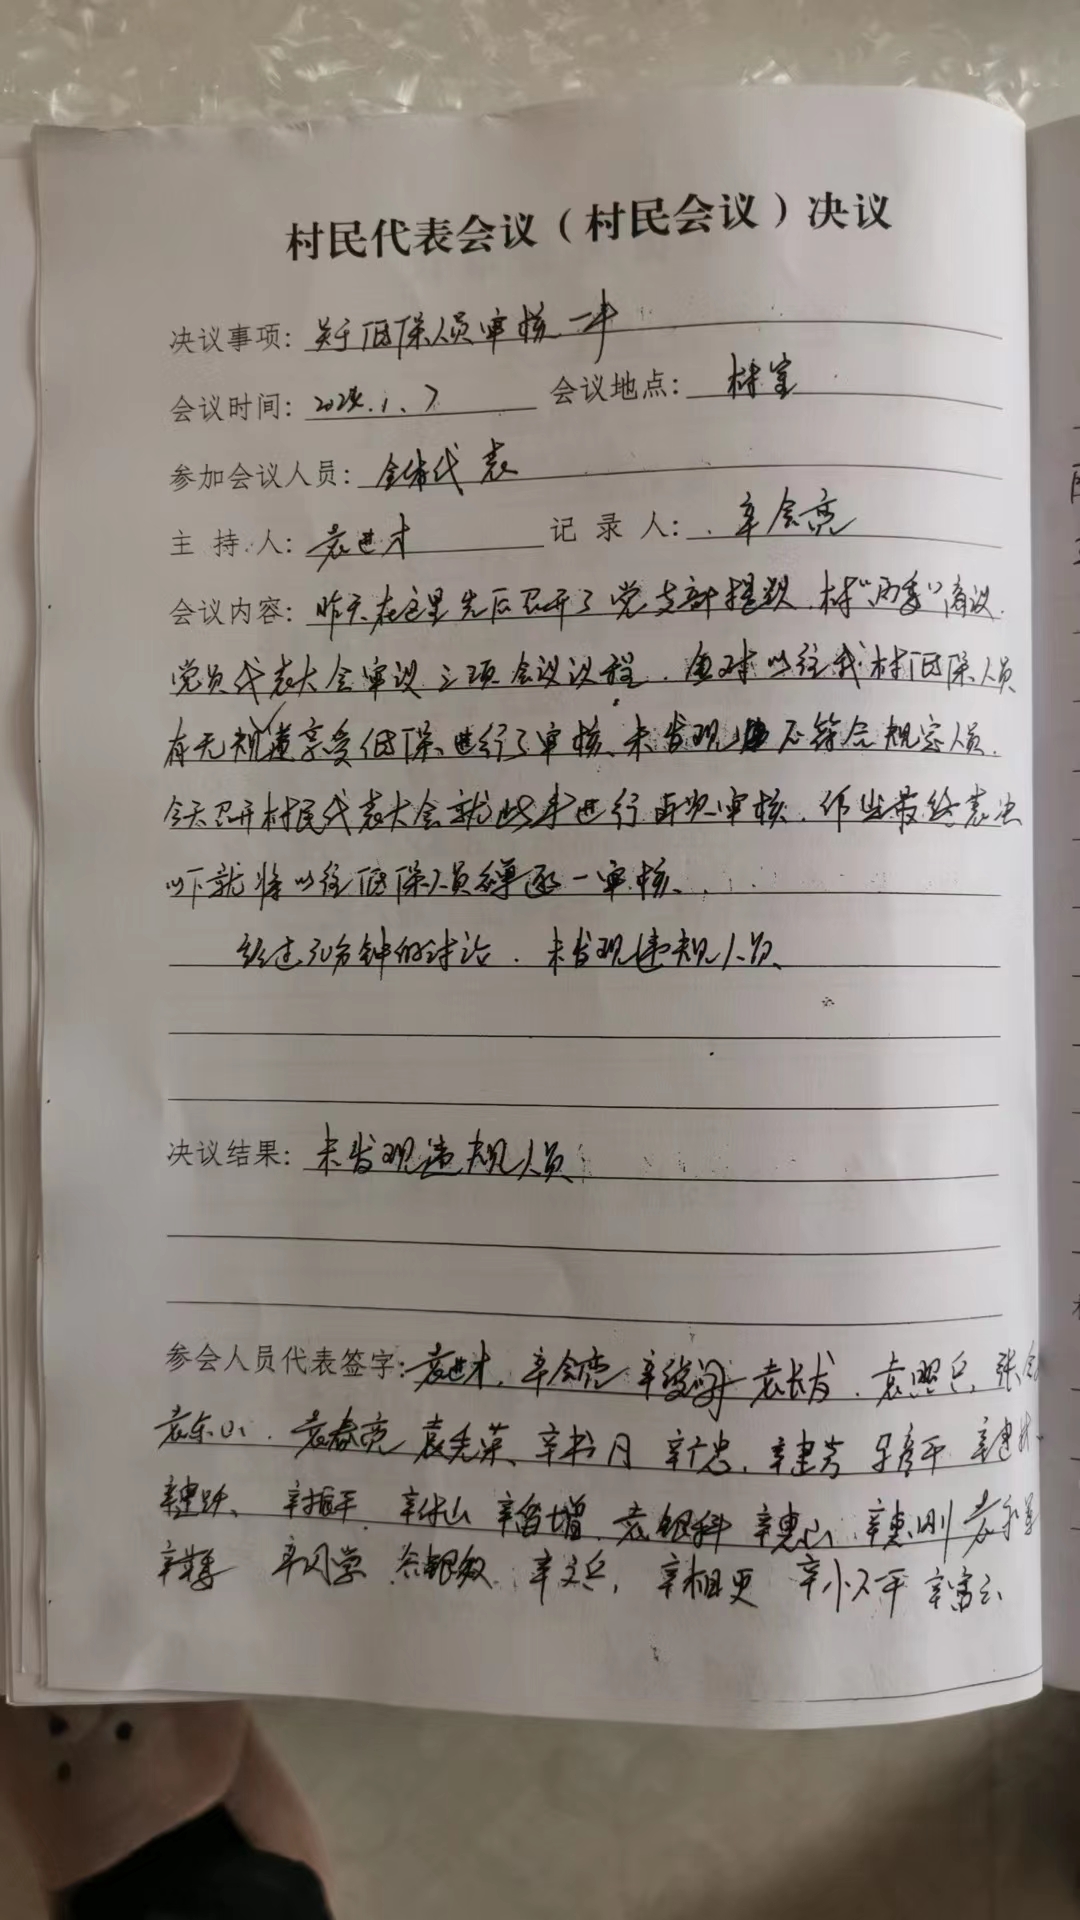 村民代表会议（村民会议）决议
决议事项：关于低保人员审核一事
会议时间：2024.1.7 会议地点：村室
参加会议人员：全体代表
主持人：袁进才 记录人：辛会亮
会议内容：昨天在这里先后召开了党支部提议、村“两委”商议、
党员代表大会审议三项会议议程，针对以往我村低保人员
有无违规享受低保进行了审核、未发现 不符合规定人员。
今天召开村民代表大会就此事进行再次审核，作出最终表决
以下就将以往低保人员名单逐一审核、
经过30分钟的讨论，未发现违规人员、
决议结果：未发现违规人员
参会人员代表签字：袁进才、辛会亮 袁长发、袁照兵、张
袁东山、袁春亮 袁秀荣、辛书月 辛广忠、辛建芳 彦平 辛建
辛建跃、辛振平、辛保山 辛富增、袁银科 辛惠山、辛惠刚 袁
辛 辛 辛文兵、辛相更 辛小不平 辛富云